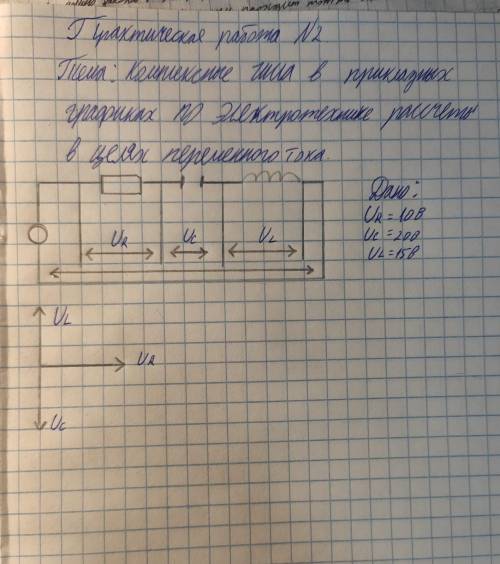 Практическая работа N2
Тема: Комплексные числа в прикладных
графиках по электротехнике рассчеты
в целях переменного тока.
Дано:
UR = 10В
UC = 20В
UL = 15В
UR UC UL
UL
UR
UC